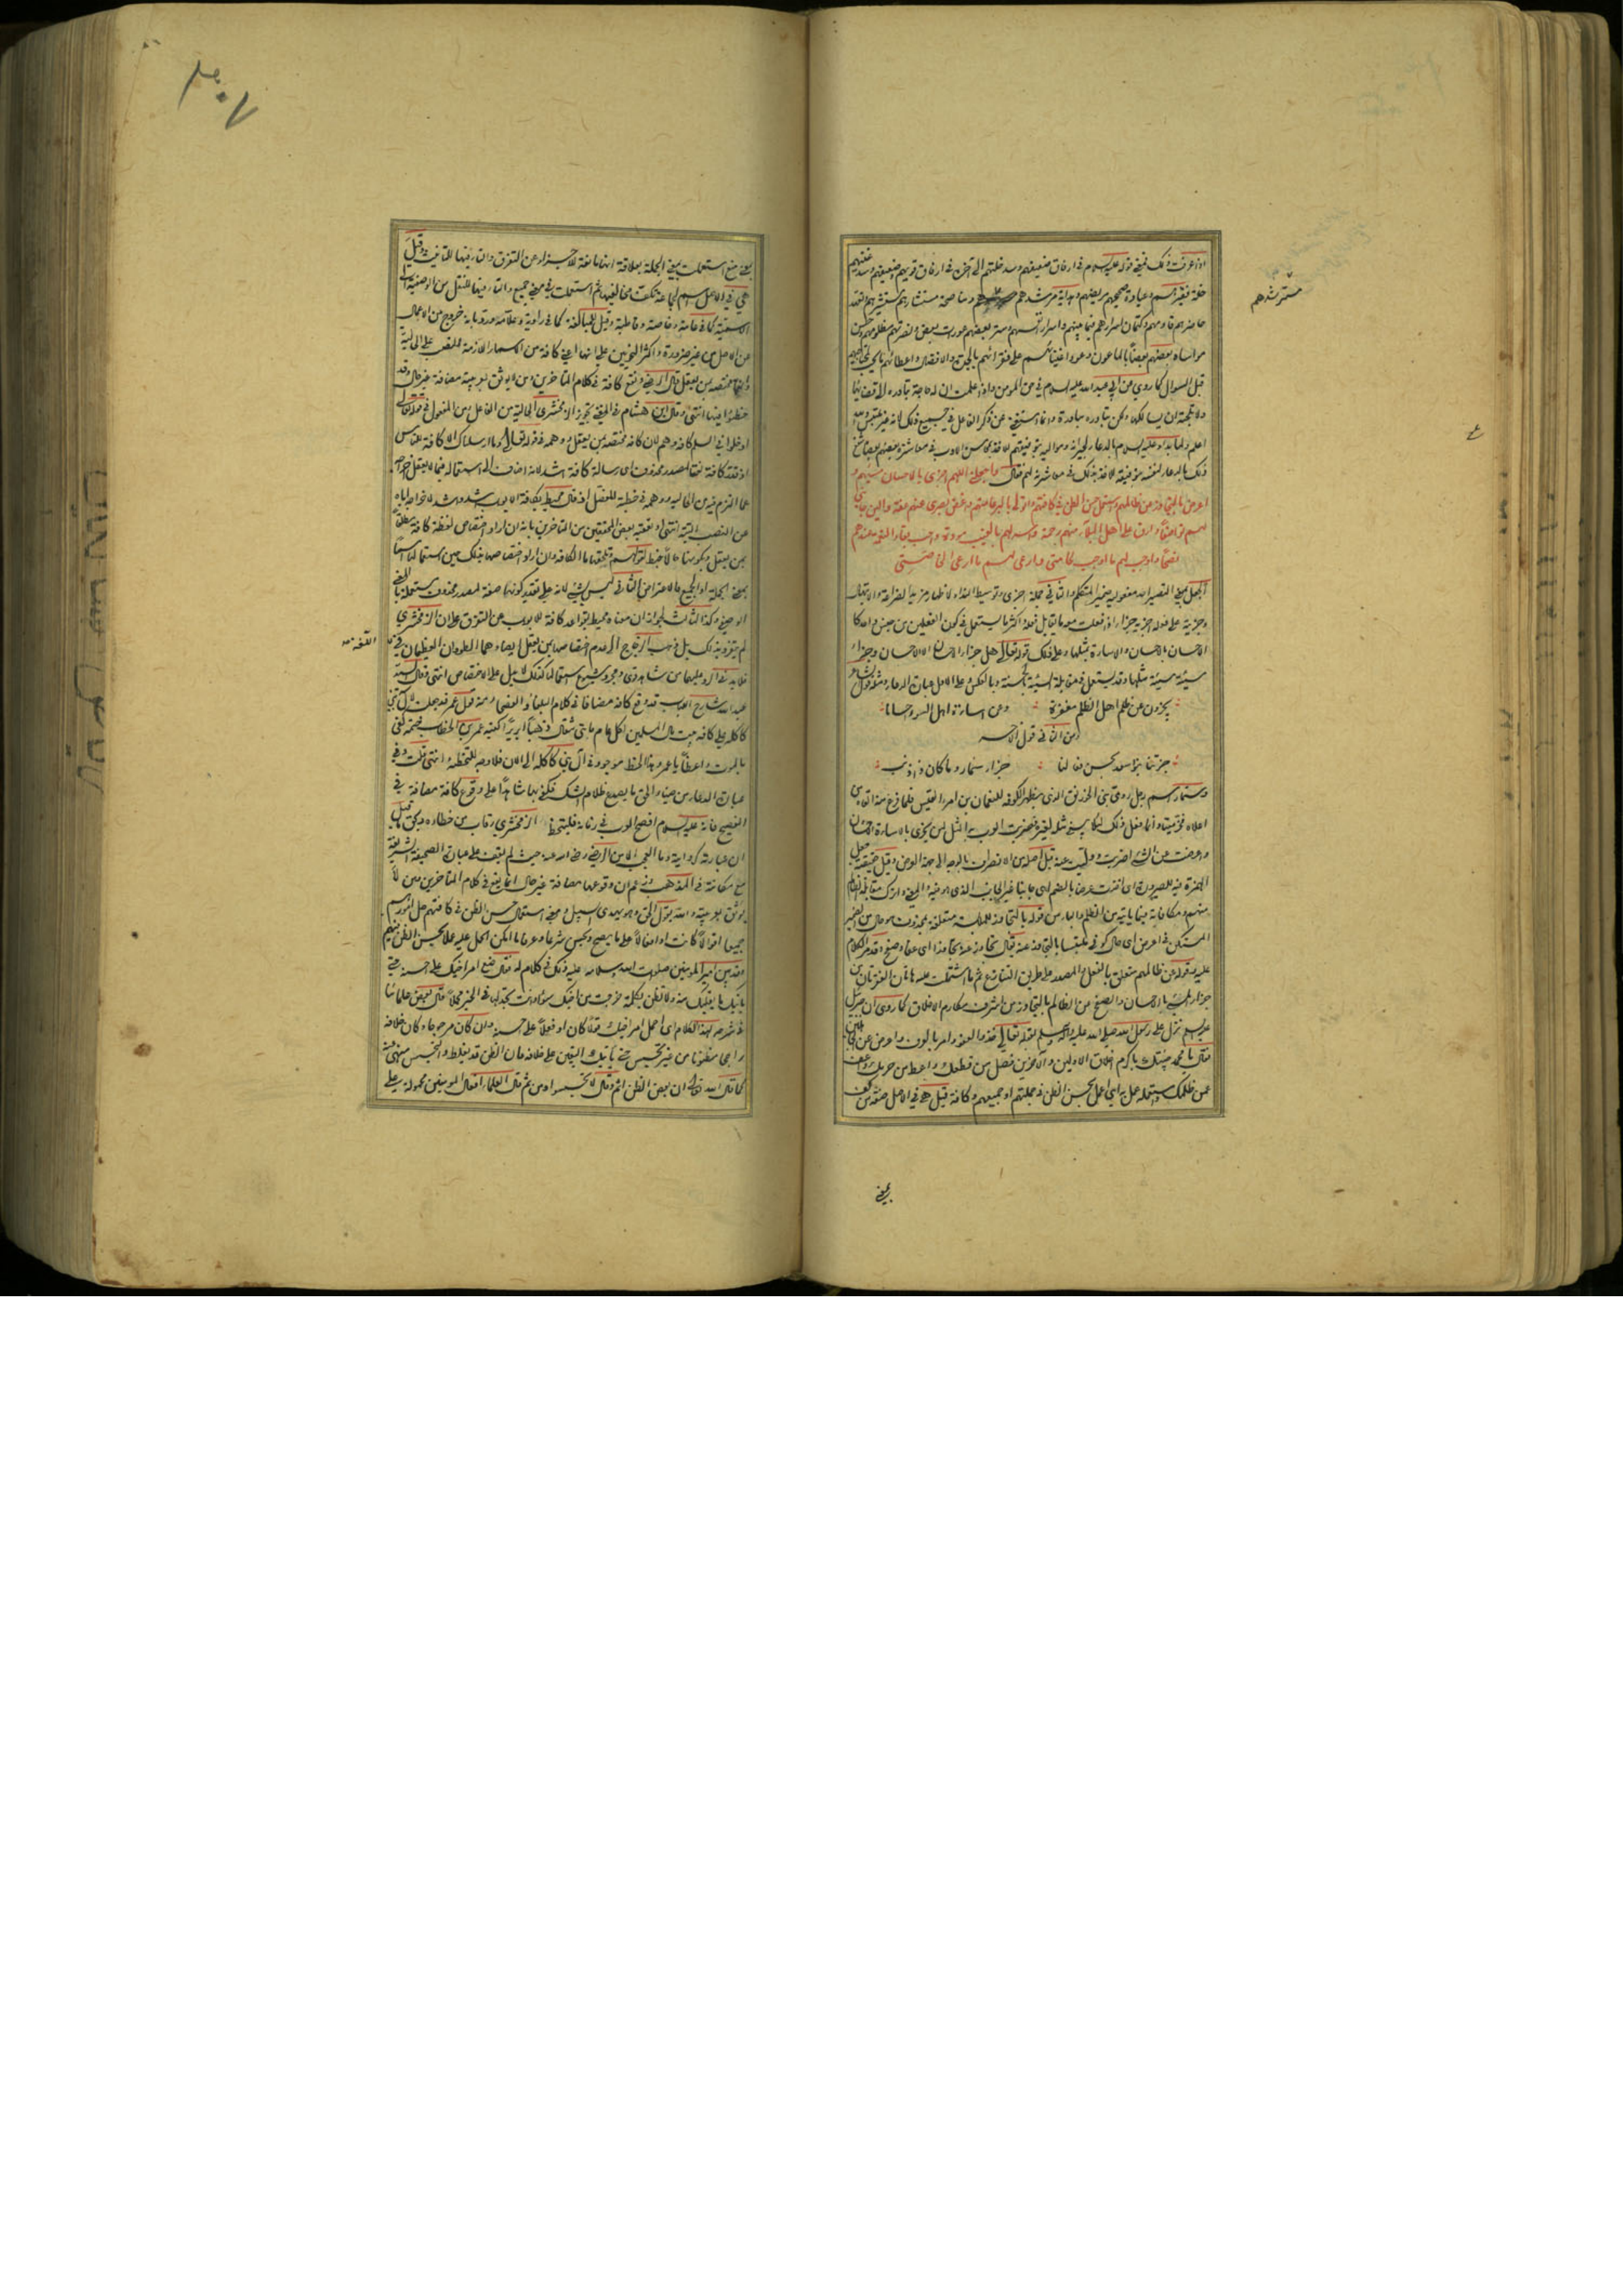 اذا عرفت ذلك فمعنى قوله عليه السلام في ارفاق ضعيفهم وسد خلتهم الى آخره في ارفاق قويهم وضعيفهم وسد غنيهم
خلة فقيرهم وعيادة صحيحهم مريضهم وهداية مرشدهم ومناصحة مستشارهم مستشيرهم وتعهد
مسترشدهم
حاضرهم قادمهم وكتمان اسرارهم فيما بينهم واسرار انفسهم وستر بعضهم عورات بعض ونصرتهم مظلومهم وحسن
مواساة بعضهم بعضا بالماعون وعود اغنيائهم على فقرائهم بالجدة والافضال واعطائهم ما يجب لهم
قبل السؤال كما روي عن ابي عبد الله عليه السلام في حق المؤمن واذا علمت ان له حاجة تبادره الى قضائها
ولا تلجئه ان يسألكها ولكن تبادره مبادرة وانما استغنى عن ذكر الفاعل في جميع ذلك لانه غير ملتبس والله
اعلم ولما بدأ عليه السلام بالدعاء لجيرانه ومواليه بتوفيقهم للاخذ بمحاسن الادب في معاشرة بعضهم بعضا شفع
ذلك بالدعاء لنفسه بتوفيقه للاخذ بذلك في معاشرته لهم فقال واجعلني اللهم اجزي بالاحسان مسيئهم و
اعرض بالتجاوز عن ظالمهم واستعمل حسن الظن في كافتهم واتولى بالبر عامتهم واغض بصري عنهم عفة والين جانبي
لهم تواضعا وارق على اهل البلاء منهم رحمة واسر لهم بالغيب مودة واحب بقاء النعمة عندهم
نصحا واوجب لهم ما اوجب لحامتي وارعى لهم ما ارعى لخاصتي
الجعل بمعنى التصيير له مفعوليه ضمير المتكلم والثاني جملة اجزي وتوسيط النداء لاظهار مزيد الضراعة والابتهال
وجزيته على فعله اجزيه جزاء اذا فعلت معه ما يقابل فعله واكثر ما يستعمل في كون الفعلين من جنس واحد كا
لاحسان بالاحسان والاساءة بمثلها وعلى ذلك قوله تعالى هل جزاء الاحسان الا الاحسان وجزاء
سيئة سيئة مثلها وقد يستعمل في مقابلة السيئة بالحسنة وبالعكس وعلى الاول عبارة الدعاء ومثله قول الشاعر
يجزون من ظلم اهل الظلم مغفرة ومن اساءة اهل السوء احسانا
ومن الثاني قول الآخر
جزتنا بنو سعد بحسن فعالنا جزاء سنمار وما كان ذا ذنب
وسنمار اسم رجل رومي بنى الخورنق الذي بظهر الكوفة للنعمان بن امرئ القيس فلما فرغ منه القاه من
اعلاه فخر ميتا وانما فعل ذلك لئلا يبني مثله لغيره فضربت العرب به المثل لمن يجزى بالاساءة الاحسان
واعرضت عن الشيء اضربت ووليت عنه قيل اصله من الانصراف بالوجه الى جهة العرض وقيل حقيقته جعل
الهمزة فيه للصيرورة اي اخذت عرضا بالضم اي جانبا غير الجانب الذي هو فيه والمعنى واترك مقابلة الظالم
منهم ومكافاته مما يأتيه من الظلم والباء من قوله بالتجاوز للملابسة متعلقة بمحذوف هو حال من الضمير
المستكن في اعرض اي حال كوني ملتبسا بالتجاوز عنه يقال تجاوز عنه تجاوزا اي عفا وصفح وقد مر الكلام
عليه وقوله عن ظالمهم متعلق بالفعل او المصدر على طريق التنازع ثم ما اشتملت عليه هاتان الفقرتان من
جزاء المسيء بالاحسان والصفح عن الظالم بالتجاوز من اشرف مكارم الاخلاق كما روي ان جبرئيل
عليه السلام نزل على رسول الله صلى الله عليه وآله وسلم بقوله تعالى خذ العفو وامر بالعرف واعرض عن الجاهلين
فقال يا محمد جئتك باكرم اخلاق الاولين والآخرين فصل من قطعك واعط من حرمك واعف
عمن ظلمك واستعمله عمل به اي اعمل بحسن الظن في جملتهم او جميعهم وكافة قيل هي في الاصل صفة من كف
بمعنى
٣٠٧
بمعنى منع استعملت بمعنى الجملة بعلاقة انها مانعة للاجزاء عن التفرق والتاء فيها للتأنيث وقيل
هي في الاصل اسم لجماعة تكف مخالفيها ثم استعملت في معنى جميع والتاء فيها للنقل من الوصفية الى
الاسمية كما في عامة وخاصة وقاطبة وقيل للمبالغة كما في راوية وعلامة ورد بانه خروج عن الاصل
من غير ضرورة واكثر النحويين على انها اعني كافة من الاسماء اللازمة للنصب على الحالية
وانها مختصة بمن يعقل قال الرضي وتقع كافة في كلام المتأخرين ومن لا يوثق بعربيته مضافة غير حال وقد
خطئوا فيها انتهى وقال ابن هشام في المغني تجويز الزمخشري الحالية من الفاعل ومن المفعول في قوله تعالى
ادخلوا في السلم كافة وهم لان كافة مختصة بمن يعقل ووهمه في قوله تعالى وما ارسلناك الا كافة للناس
اذ قدر كافة نعتا لمصدر محذوف اي رسالة كافة اشد لانه اضاف الى استعماله فيما لا يعقل اخراجه
عما التزم فيه من الحالية ووهمه في خطبة المفصل اذ قال محيط بكافة الابواب اشد واشد لاخراجه اياه
عن النصب البتة انتهى وتعقبه بعض المحققين من المتأخرين بانه ان اراد اختصاص لفظة كافة مطلقا
بمن يعقل وبكونها حالا
بمعنى الجملة او الجميع
الوصفي وكذا الثالث لجواز ان معناه محيط بقواعد كافة لابواب عن التفرق على ان الزمخشري
لم يتفرد بذلك بل ذهب الزجاج الى عدم اختصاصها بمن يعقل ايضا وهما الطودان العظيمان
عبد الله شارح اللباب قد وقع كافة مضافا في كلام البلغاء والفصحاء ومنه قول عمر قد جعلت لآل بني
كاكلة على كافة بيت مال المسلمين لكل عام مائتي مثقال ذهبا ابريزا كتبه عمر بن الخطاب ختمه كفى
بالموت واعظا يا عمر وهذا الخط موجود في آل بني كاكلة الى الآن فلا وجه للتخطئة انتهى قلت وفي
عبارة الدعاء من ضياء الحق ما يصدع ظلام الشك فكفى بها شاهدا على وقوع كافة مضافة في
الفصيح فانه عليه السلام افصح العرب في زمانه فليتخط الزمخشري رقاب من خطاه
ان عبارته كروايته وما العجب الا من الرضي رضي الله عنه حيث لم يقف على عبارة الصحيفة الشريفة
مع مكانته في المذهب فزعم ان وقوعها مضافة غير حال انما يقع في كلام المتأخرين ومن لا
يوثق بعربيته والله يقول الحق وهو يهدي السبيل ومعنى استعمال حسن الظن في كافتهم حمل امورهم
جميعها اقوالا كانت او افعالا على ما يصح ويحسن شرعا وعرفا ما امكن الحمل عليه عملا بحسن الظن فيهم
وقد بين امير المؤمنين صلوات الله وسلامه عليه ذلك في كلام له فقال ضع امر اخيك على احسنه حتى
يأتيك ما يغلبك منه ولا تظنن بكلمة خرجت من اخيك سوءا وانت تجد لها في الخير محملا قال بعض علمائنا
في شرحه لهذا الكلام اي احمل امر اخيك قولا كان او فعلا على احسنه وان كان مرجوحا وكان خلافه
راجحا مظنونا من غير تجسس حتى يأتيك اليقين على خلافه فان الظن قد يغلط والتجسس منهي عنه
كما قال الله تعالى ان بعض الظن اثم وقال لا تجسسوا ومن ثم قال العلماء افعال المؤمنين محمولة على